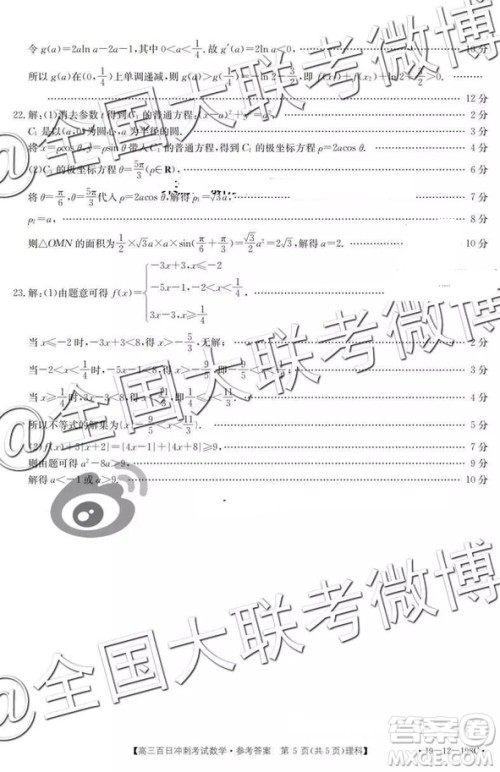 令g(a)=2aln a-2a-1,其中0<a<1/4,故g′(a)=2ln a≤0, 10分
所以g(a)在(0,1/4)上单调递减,则g(a)>g(1/4)=-ln 2-3/2,即f(x₁)+f(x₂)>-ln 2-3/2.
12分
22.解:(1)消去参数t得到C₁的普通方程:(x-a)²+y²=a², 2分
C₁是以(a,0)为圆心,a为半径的圆. 3分
将x=ρcosθ,y=ρsinθ带入C₁的普通方程,得到C₁的极坐标方程为ρ=2acos θ. 4分
(2)C₂的极坐标方程θ=5π/3(ρ∈R), 5分
将θ=π/6,θ=5π/3代入ρ=2acos θ,解得ρ₁=√3a, 7分
ρ₂=a, 8分
则△OMN的面积为1/2×√3a×a×sin(π/6+π/3)=√3/2a²=2√3,解得a=2. 10分
23.解:(1)由题意可得f(x)={-3x+3,x≤-2
-5x-1,-2<x<1/4,
3x-3,x≥1/4
当x≤-2时,-3x+3<8,得x>-5/3,无解; 2分
当-2<x<1/4时,-5x-1<8,得x>-9/5,即-9/5<x<1/4; 3分
当x≥1/4时,3x-3<8,得x<11/3,即1/4≤x<11/3. 4分
所以不等式的解集为(-9/5,11/3). 5分
(2)f(x)+5|x+2|=|4x-1|+|4x+8|≥9, 7分
则由题可得a²-8a>9, 9分
解得a<-1或a>9. 10分
@全国大联考微博
@全国大联考微博
【高三百日冲刺考试数学·参考答案 第5页(共5页)理科】
·19-12-108C·